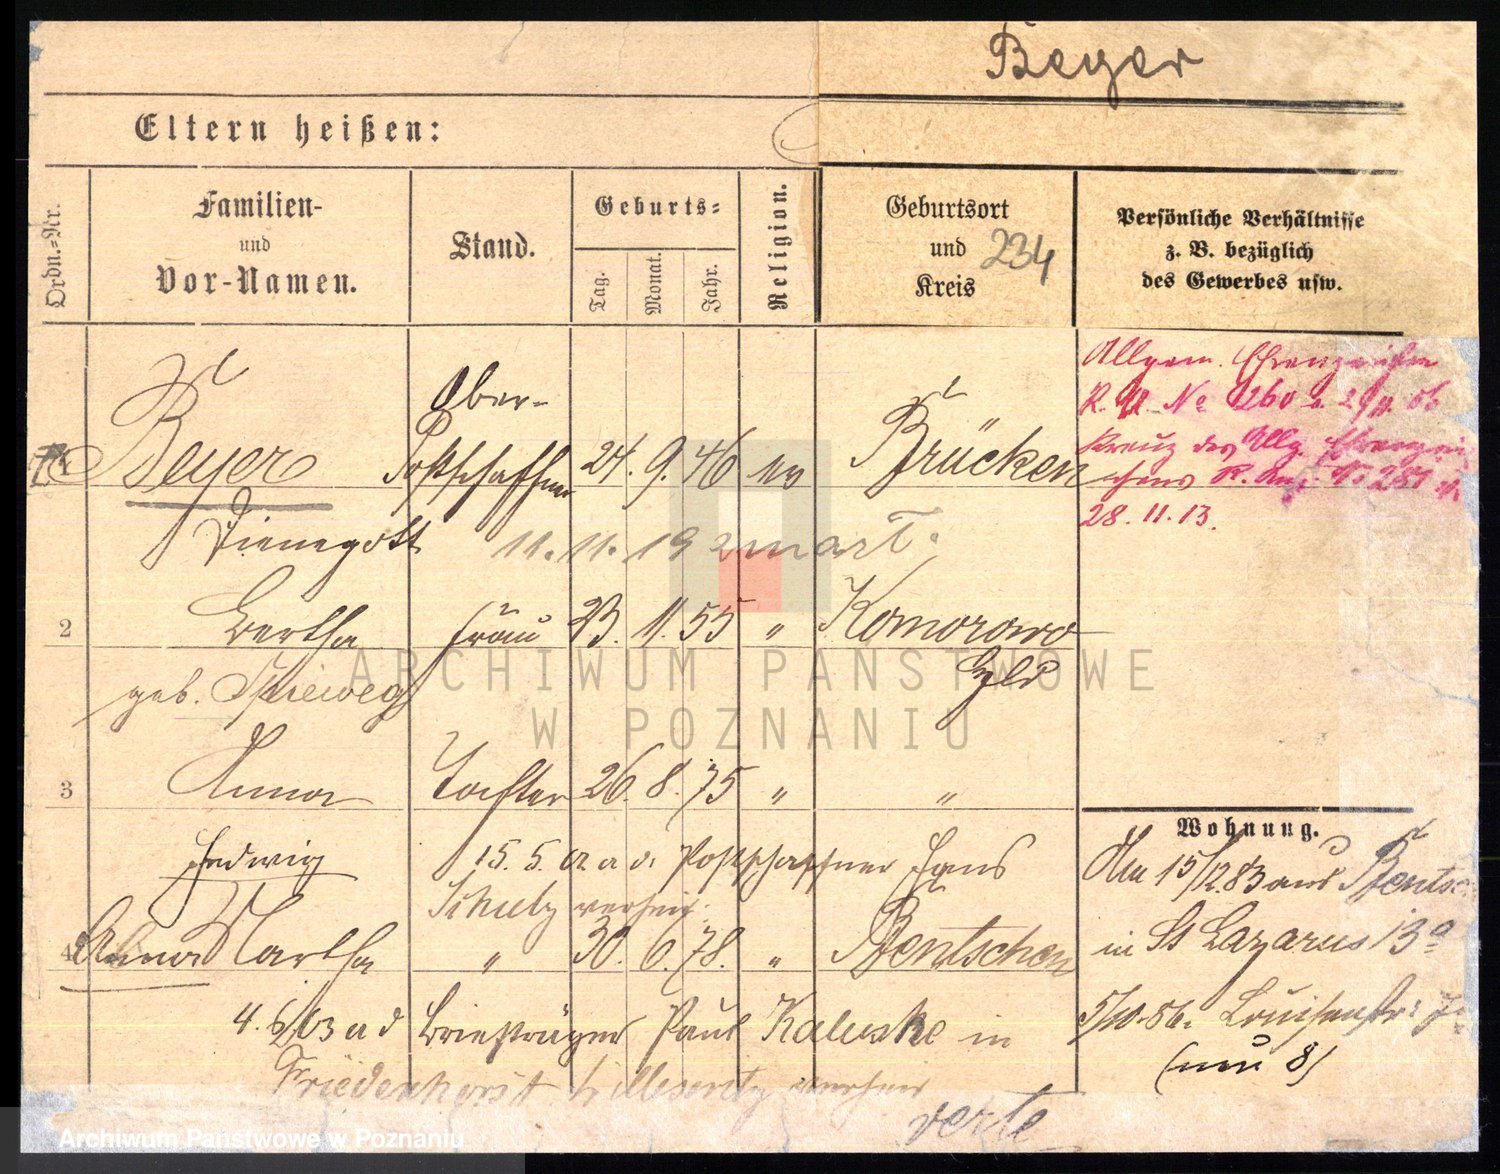 Beyer
Eltern heißen:
Ordn.-Nr.
Familien-
und
Vor-Namen.
Stand.
Geburts-
Tag.
Monat.
Jahr.
Religion.
Geburtsort
und
Kreis
234
Persönliche Verhältnisse
z. B. bezüglich
des Gewerbes usw.
Allgem. Ehrenzeichen
Kreuz des Allg. Ehrenzei
chens R. Anz. No 281
28.11.13.
1 Beyer Ober-
Postschaffner 24. 9. 46 ev Brücken
Dienegott 11.11.19
2 Bertha Frau 23. 11. 55 " Komorowo
geb.
3 Anna Tochter 26. 8. 75 " "
Hedwig 15.5. a. d. Postschaffner Hans
Schulz verheir.
4 Anna Martha " 30. 6. 78. " Bentschen
4. a d Briefträger Paul Kaluske in
Friedenhorst verheir
verte
Wohnung.
Am 15/12 83 aus Bentsc
in St Lazarus 13a
5/10.86. Louisenstr:
(nun 8)
ARCHIWUM PAŃSTWOWE
W POZNANIU
Archiwum Państwowe w Poznaniu